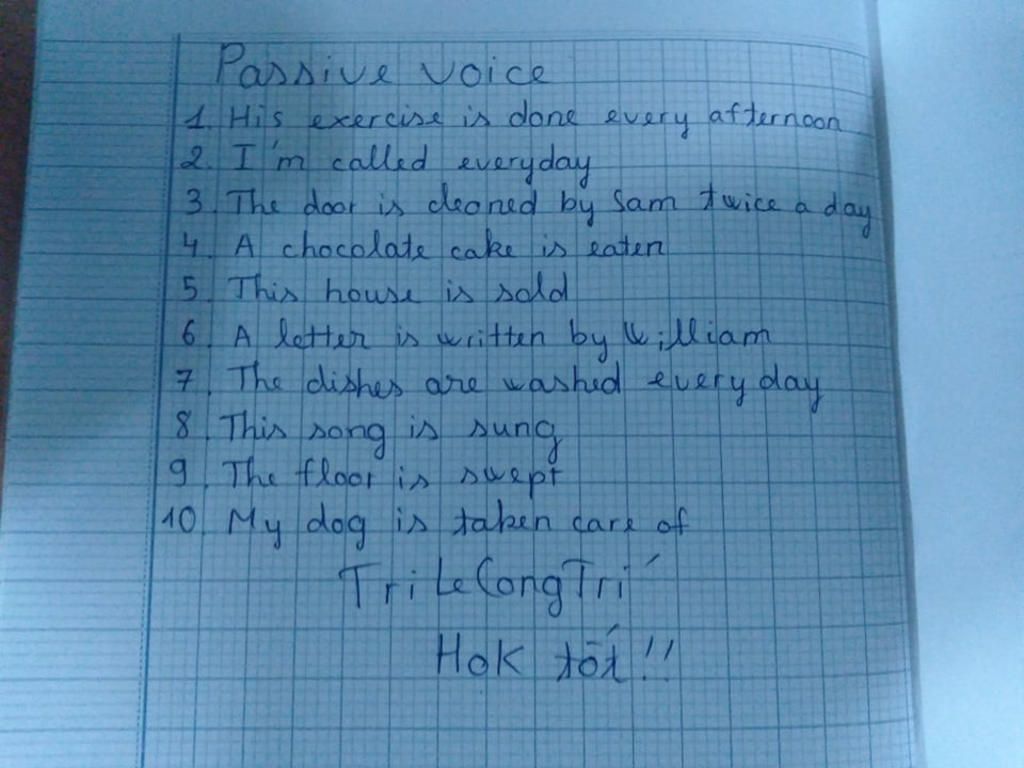 Passive voice
1. His exercise is done every afternoon
2. I'm called everyday
3. The door is cleaned by Sam twice a day
4. A chocolate cake is eaten
5. This house is sold
6. A letter is written by William
7. The dishes are washed every day
8. This song is sung
9. The floor is swept
10. My dog is taken care of
Tri Le Cong Trí
Hok tốt!!